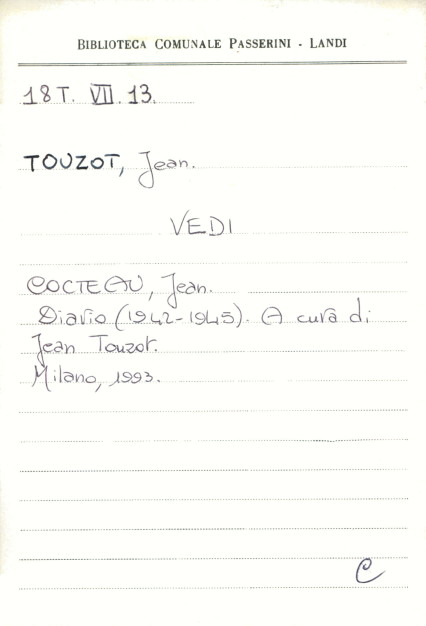 BIBLIOTECA COMUNALE PASSERINI - LANDI
18T. VII. 13.
TOUZOT, Jean.
VEDI
COCTEAU, Jean.
Diario (1942-1945). A cura di
Jean Touzot.
Milano, 1993.
C